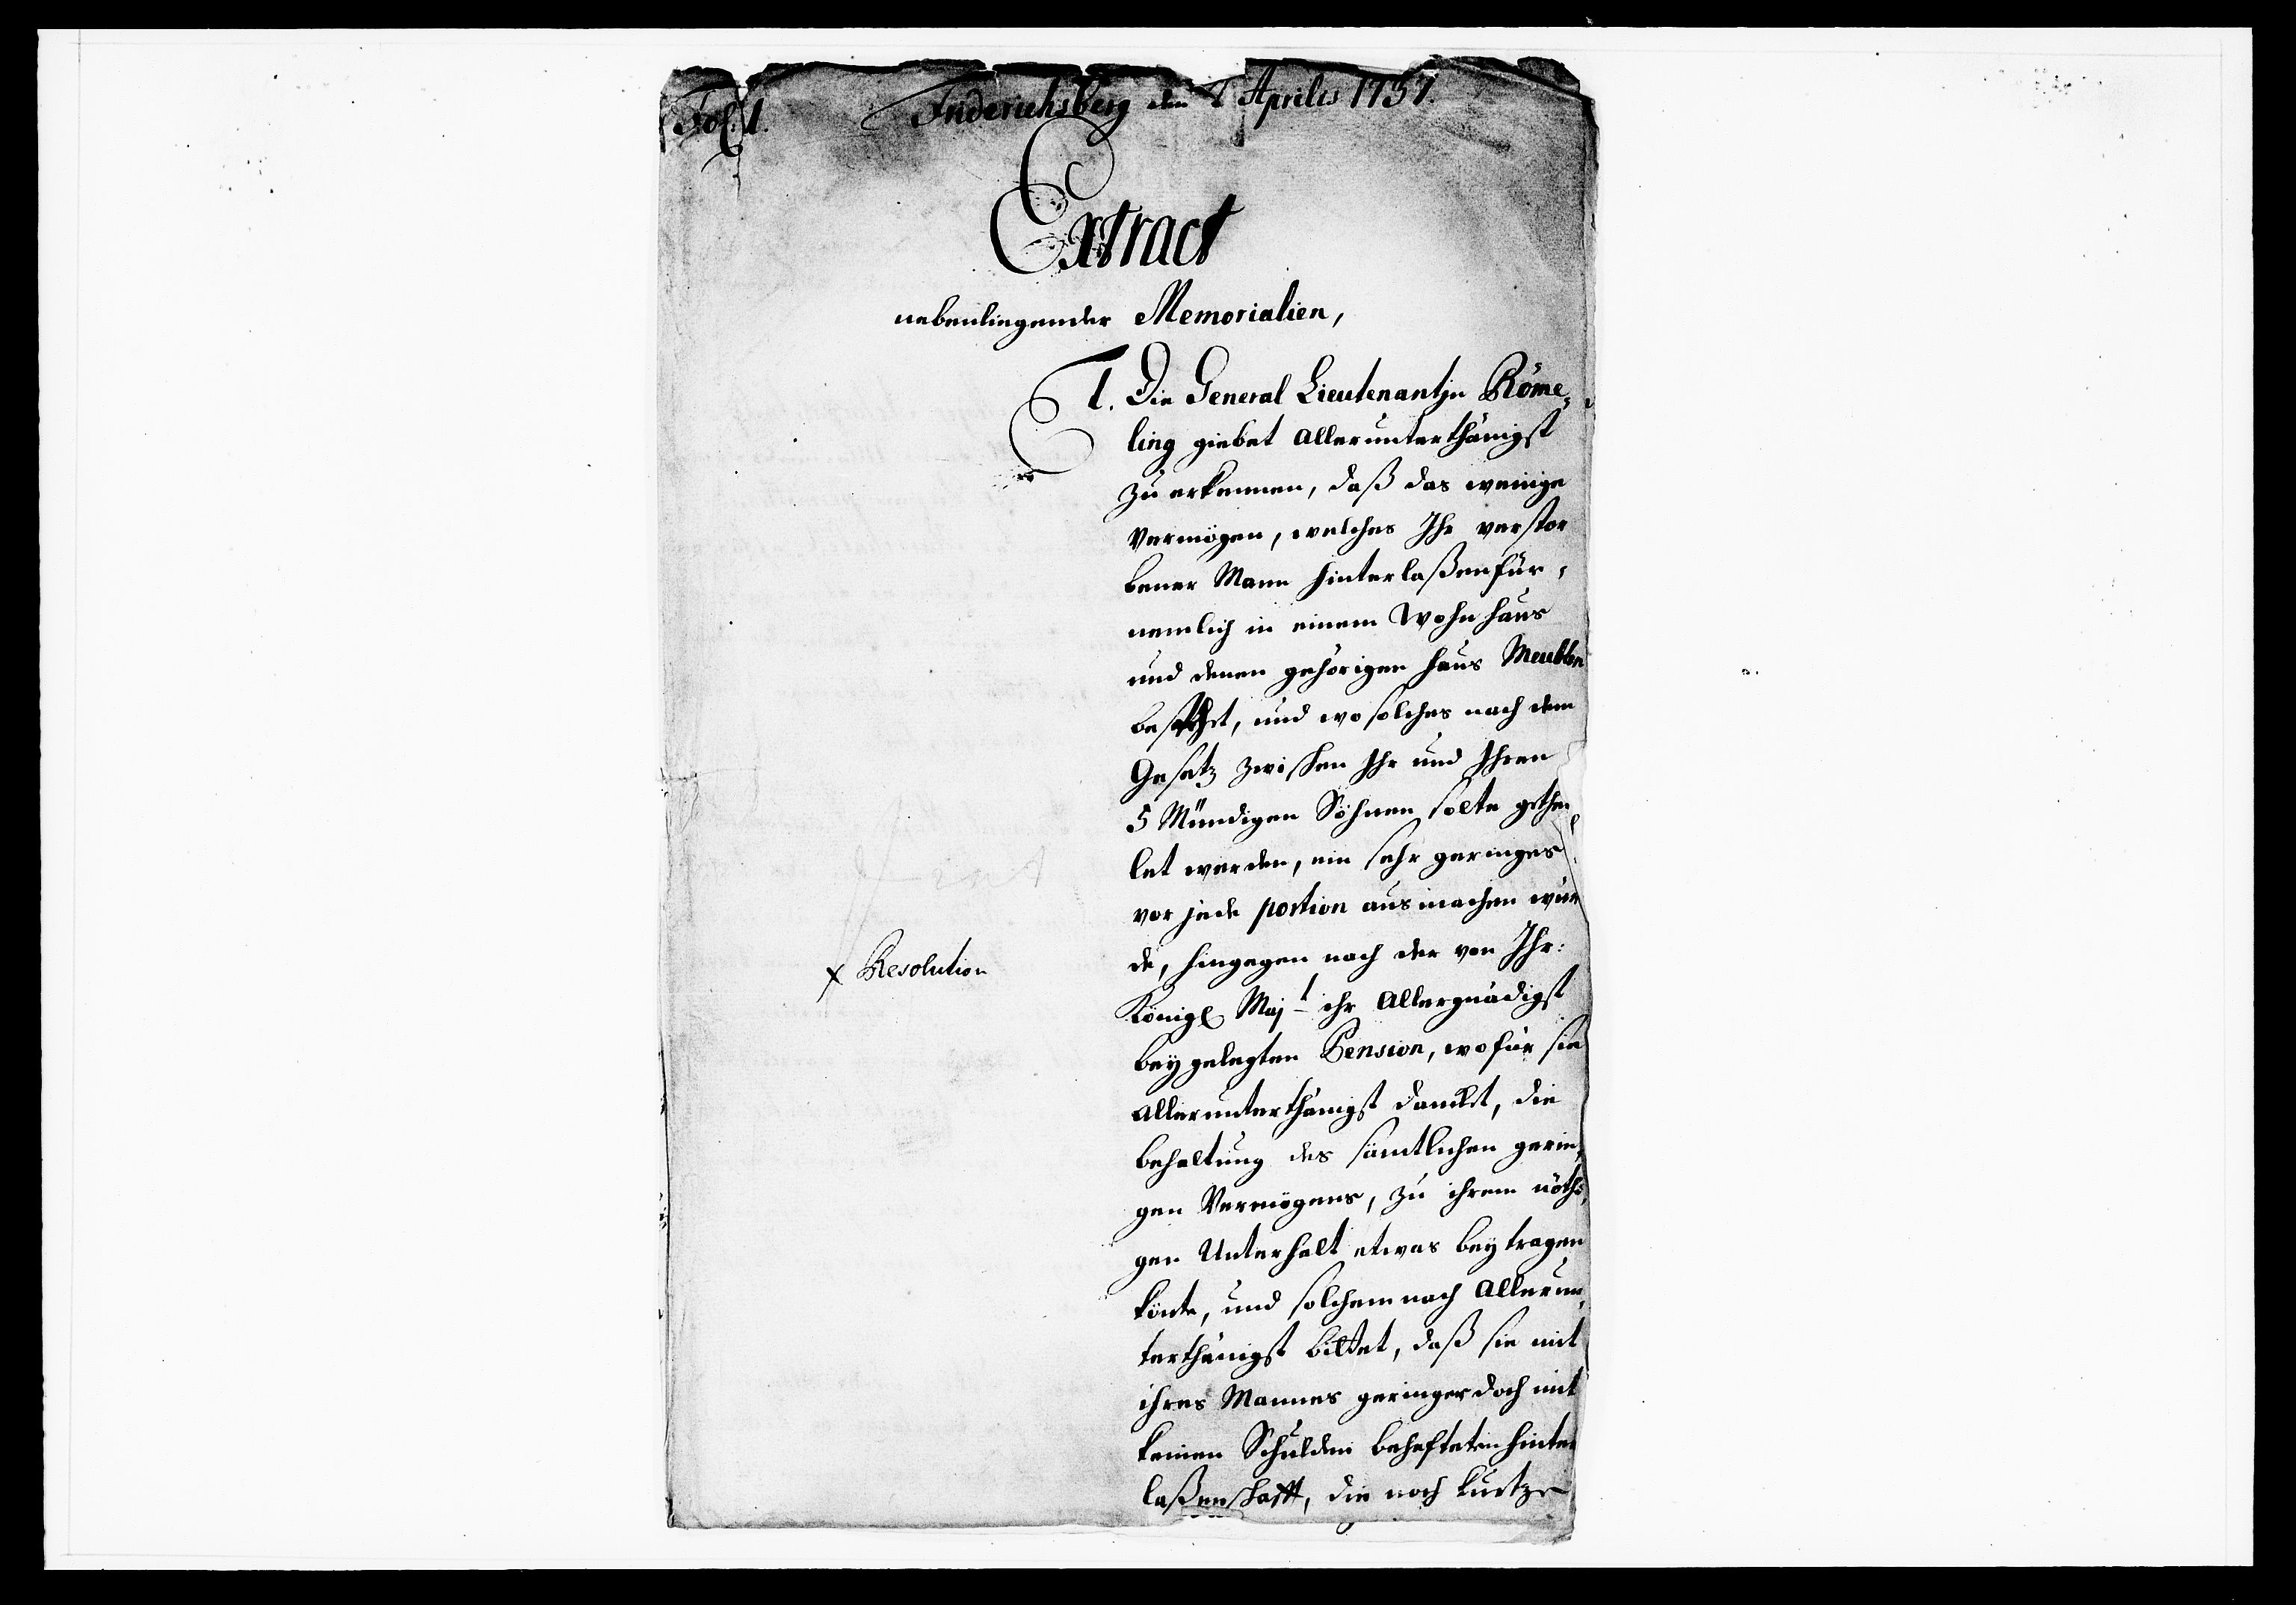 Fol. 1.
Friderichsberg den Aprilis 1737.
Extract
nebenliegender Memorialien,
1. Die General Lieutenantin Röme-
ling giebet allerunterthänigst
zu erkennen, daß das wenige
Vermögen, welches Ihr verstor
bener Mann hinterlaßen für-
nemlich in einem Wohnhaus
und denen gehörigen Haus Meublen
bestehet, und wo solches nach dem
Gesetz zwischen Ihr und Ihren
5 Mündigen Söhnen solte gethei
let werden, ein sehr geringes
vor jede portion ausmachen wür
de, hingegen nach der von Ihr:
Königl Majt ihr allergnädigst
beygelegten Pension, wofür sie
allerunterthänigst dancket, die
behaltung des sämtlichen gerin-
gen Vermögens, zu ihrem nöthi-
gen Unterhalt etwas beytragen
könte, und solchemnach allerun-
terthänigst bittet, daß sie mit
ihres Mannes geringer doch mit
keinen Schulden behafteten hinter
laßenschafft, die noch kurtze
x Resolution